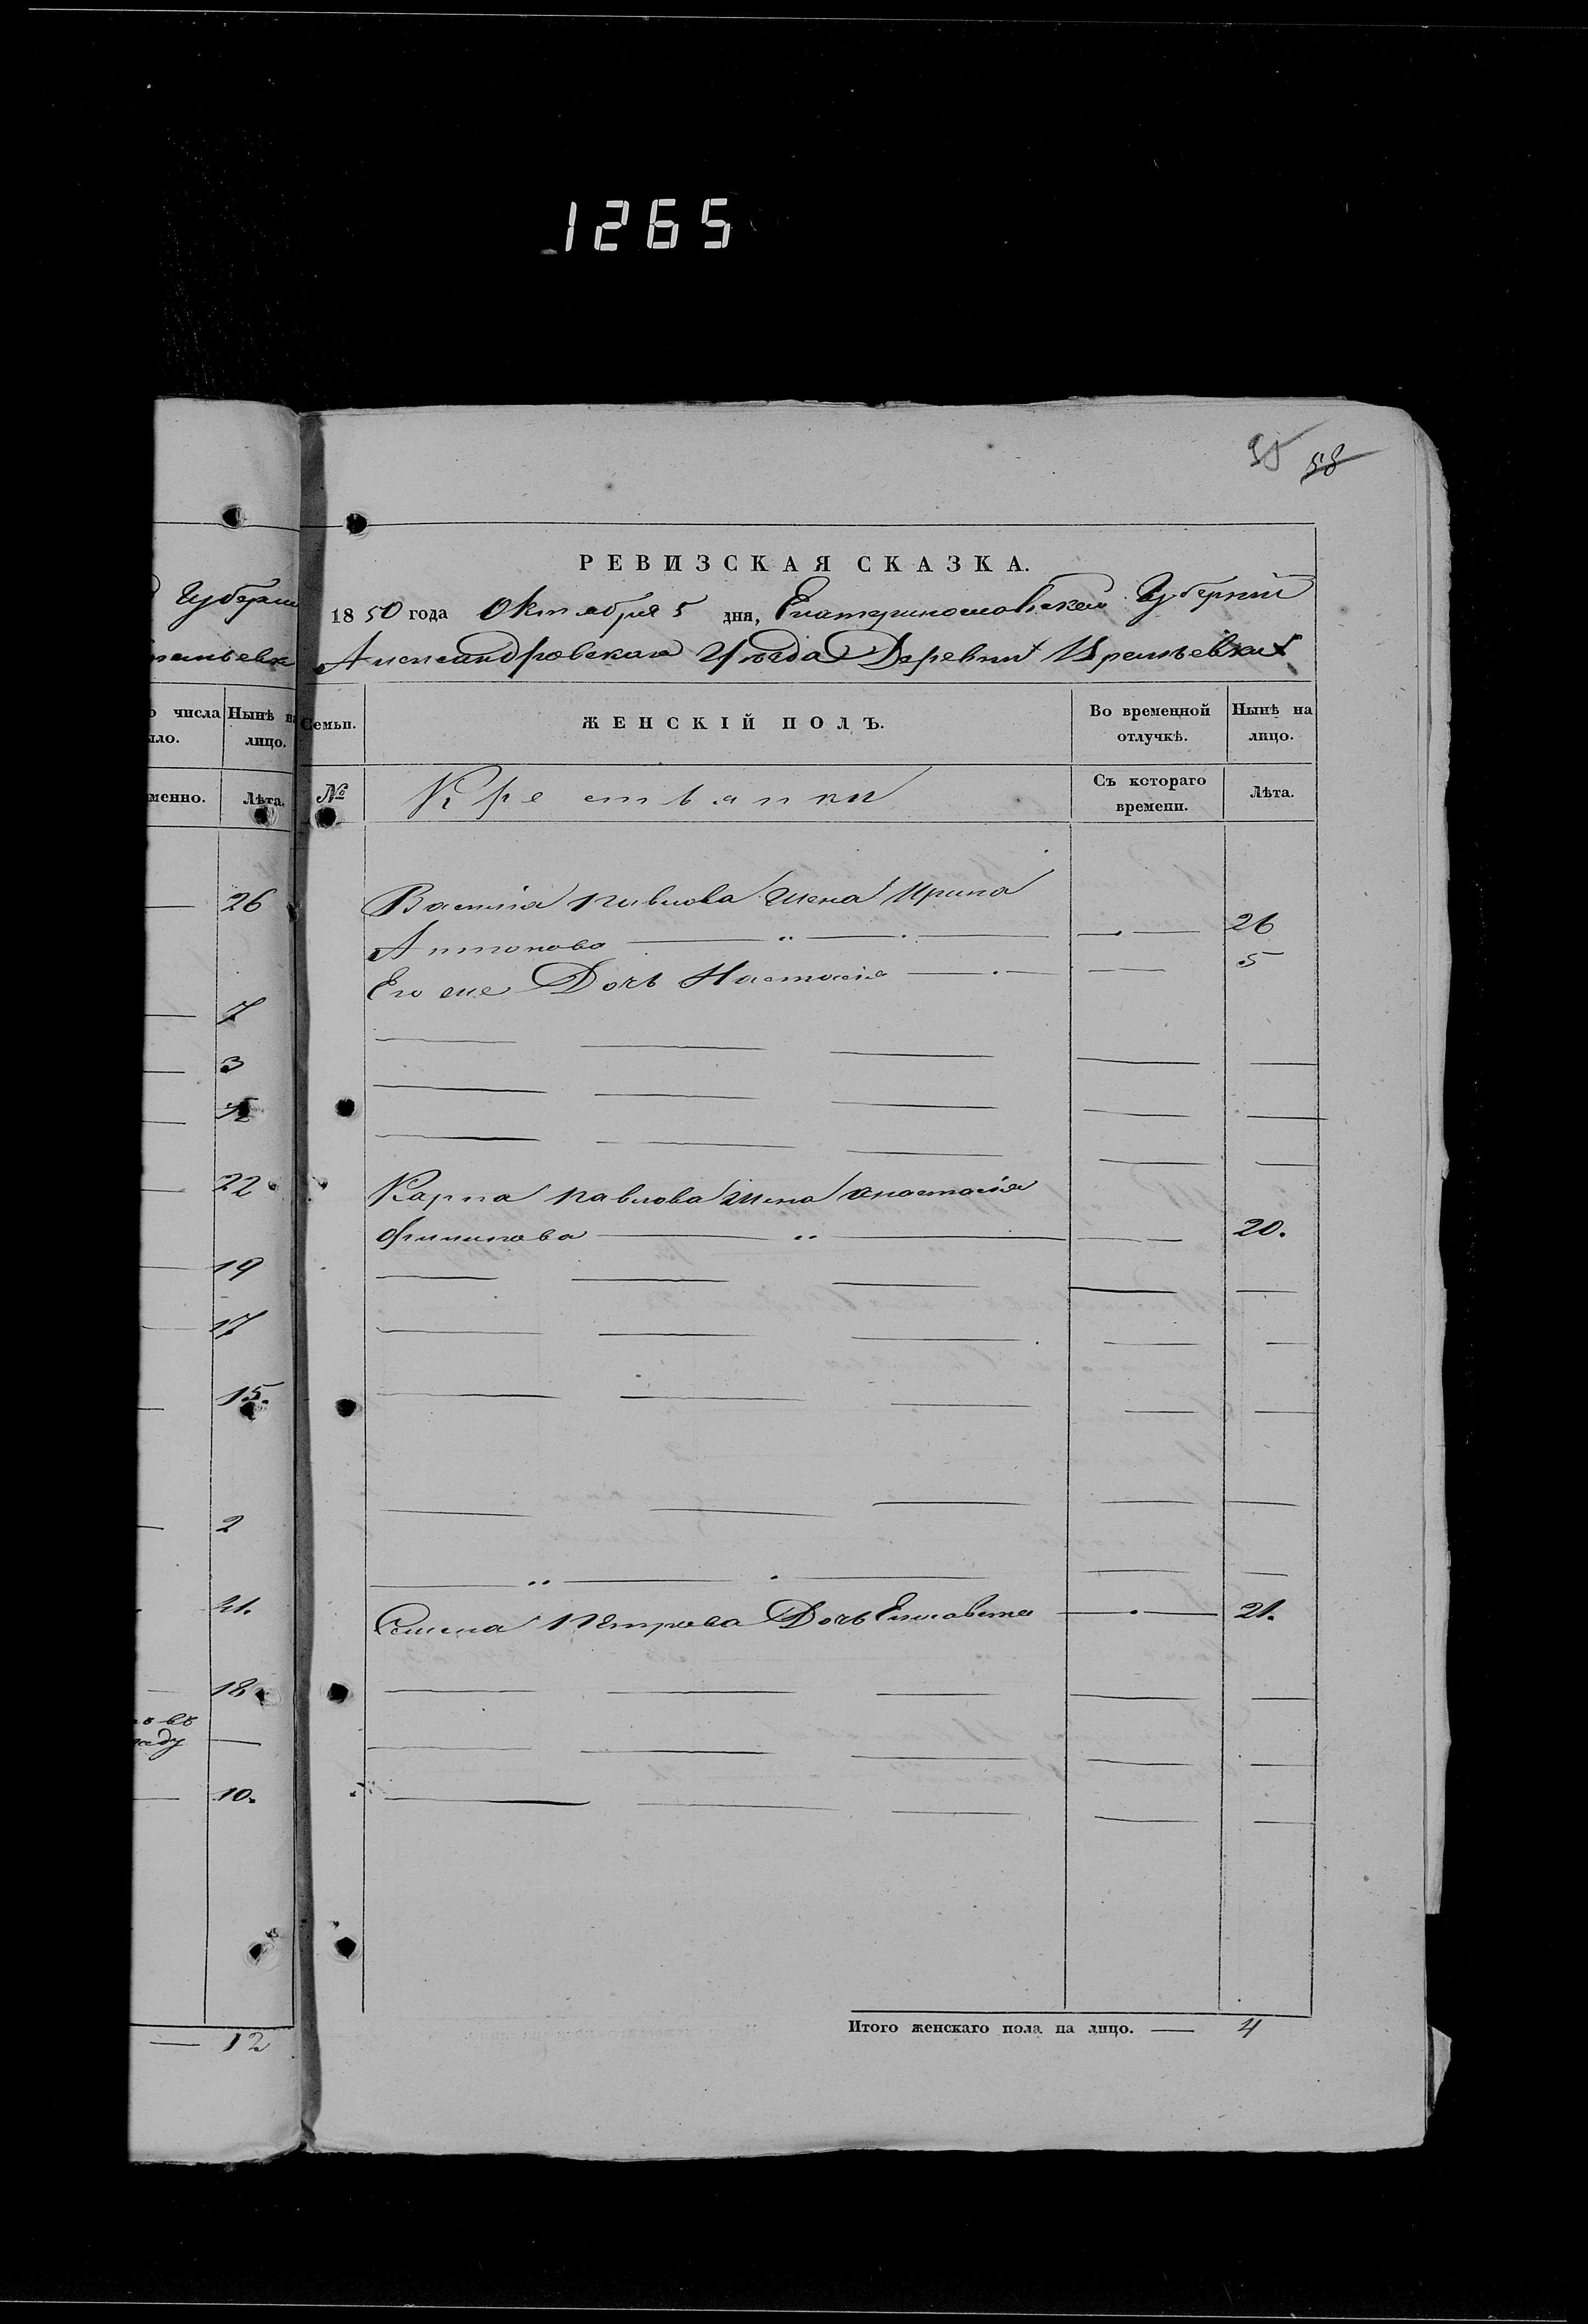 1265
35 58
Губерніи
26
7
3
12
22
19
17
15.
2
21.
18
10.
12
о числа
Нынѣ на лицо.
Лѣта.
РЕВИЗСКАЯ СКАЗКА.
1850 года Октября 5 дня, Екатеринославской Губерніи
Александровскаго Уѣзда Деревни
Семьи.
ЖЕНСКІЙ ПОЛЪ.
Во временной отлучкѣ.
Нынѣ на лицо.
№
Крестьянки
Съ котораго времени.
Лѣта.
Василія Павлова жена Ирина
Антонова 26
Его же Дочь Настасія 5
Карпа Павлова жена Анастасія
Филипова 20.
Семена Петрова Дочь Елисавета 21.
Итого женскаго пола на лицо. — 4